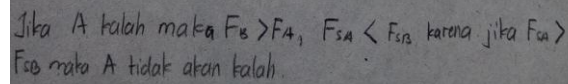 Jika A kalah maka F_B > F_A, F_SA < F_SB karena jika F_SA >
F_SB maka A tidak akan kalah.